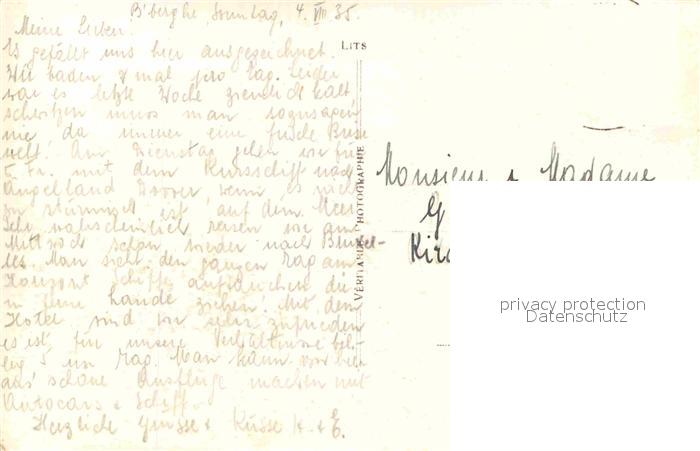 B'berghe, Sonntag, 4. VIII 35.
Meine Lieben.
Es gefällt uns hier ausgezeichnet.
Wir baden mal pro Tag. Leider
war es letzte Woche ziemlich kalt
schwitzen muss man sozusagen
nie, da immer eine frische Brise
weht. Am Dienstag gehen wir
mit dem Kursschiff nach
Angelland Dover, wenn es nicht
zu stürmisch ist auf dem Meer
wahrscheinlich reisen wir am
Mittwoch schon wieder nach Brüssel-
les Man sieht den ganzen Tag am
Horizont Schiffe auftauchen die
in ferne Lande ziehen! Mit dem
Hotel sind wir sehr zufrieden
es ist für unsere Verhältnisse bil-
lig 5 im Tag. Man kann von hier
aus schöne Ausflüge machen mit
Autocars & Schiff.
Herzliche Grüsse & Küsse H. & E.
LITS
VÉRITABLE PHOTOGRAPHIE
Monsieur & Madame
G
Kirc
privacy protection
Datenschutz